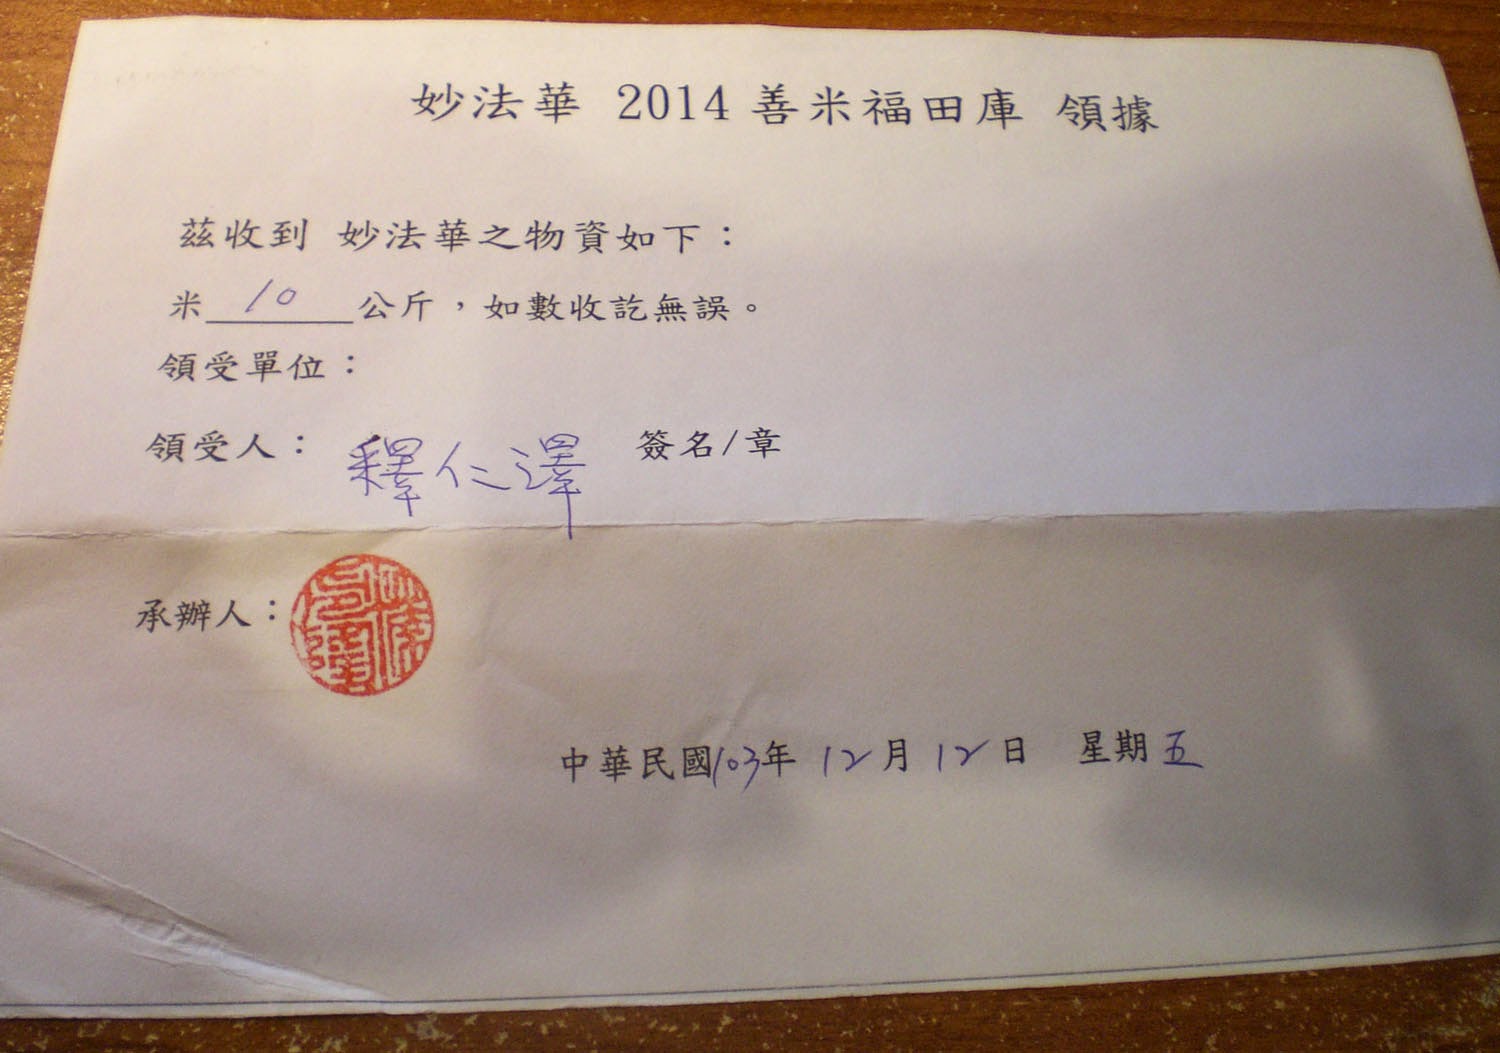 妙法華 2014 善米福田庫 領據
茲收到 妙法華之物資如下：
米 10 公斤，如數收訖無誤。
領受單位：
領受人： 釋仁澤 簽名/章
承辦人：
中華民國103年 12月 12日 星期五